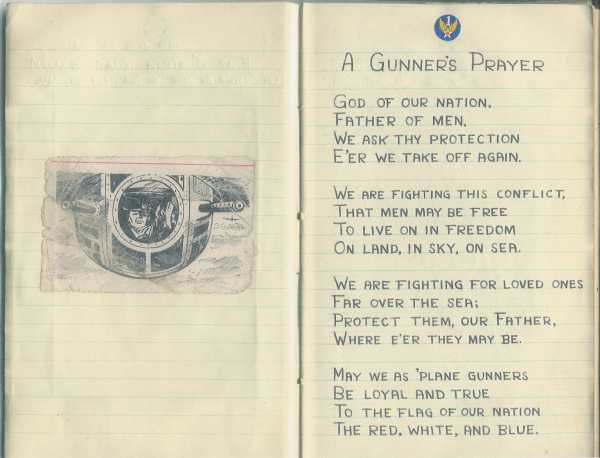 A Gunner's Prayer
God of our nation,
Father of men,
We ask Thy protection
E'er we take off again.
We are fighting this conflict,
That men may be free
To live on in freedom
On land, in sky, on sea.
We are fighting for loved ones
Far over the sea;
Protect them, our Father,
Where e'er they may be.
May we as 'plane gunners
Be loyal and true
To the flag of our nation
The red, white, and blue.